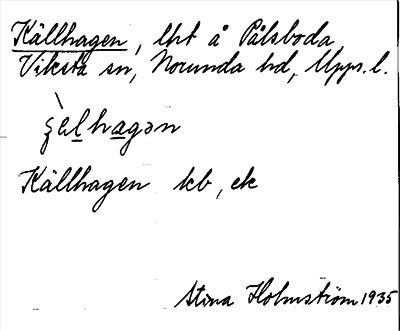 Källhagen, lht å Pålsboda
Viksta sn, Norunda hd, Upps. l.
ʂælhagən
Källhagen kb, ek
Stina Holmström 1935